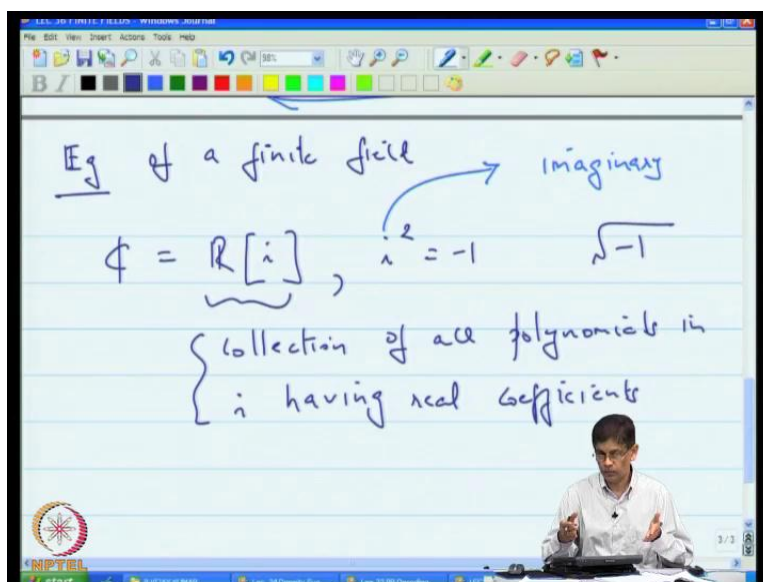 LEC 36 FINITE FIELDS - Windows Journal
File Edit View Insert Actions Tools Help
98%
B I
Eg of a finite field
imaginary
ℂ = ℝ[i], i² = -1 √-1
{ collection of all polynomials in
i having real coefficients
3/3
NPTEL
start